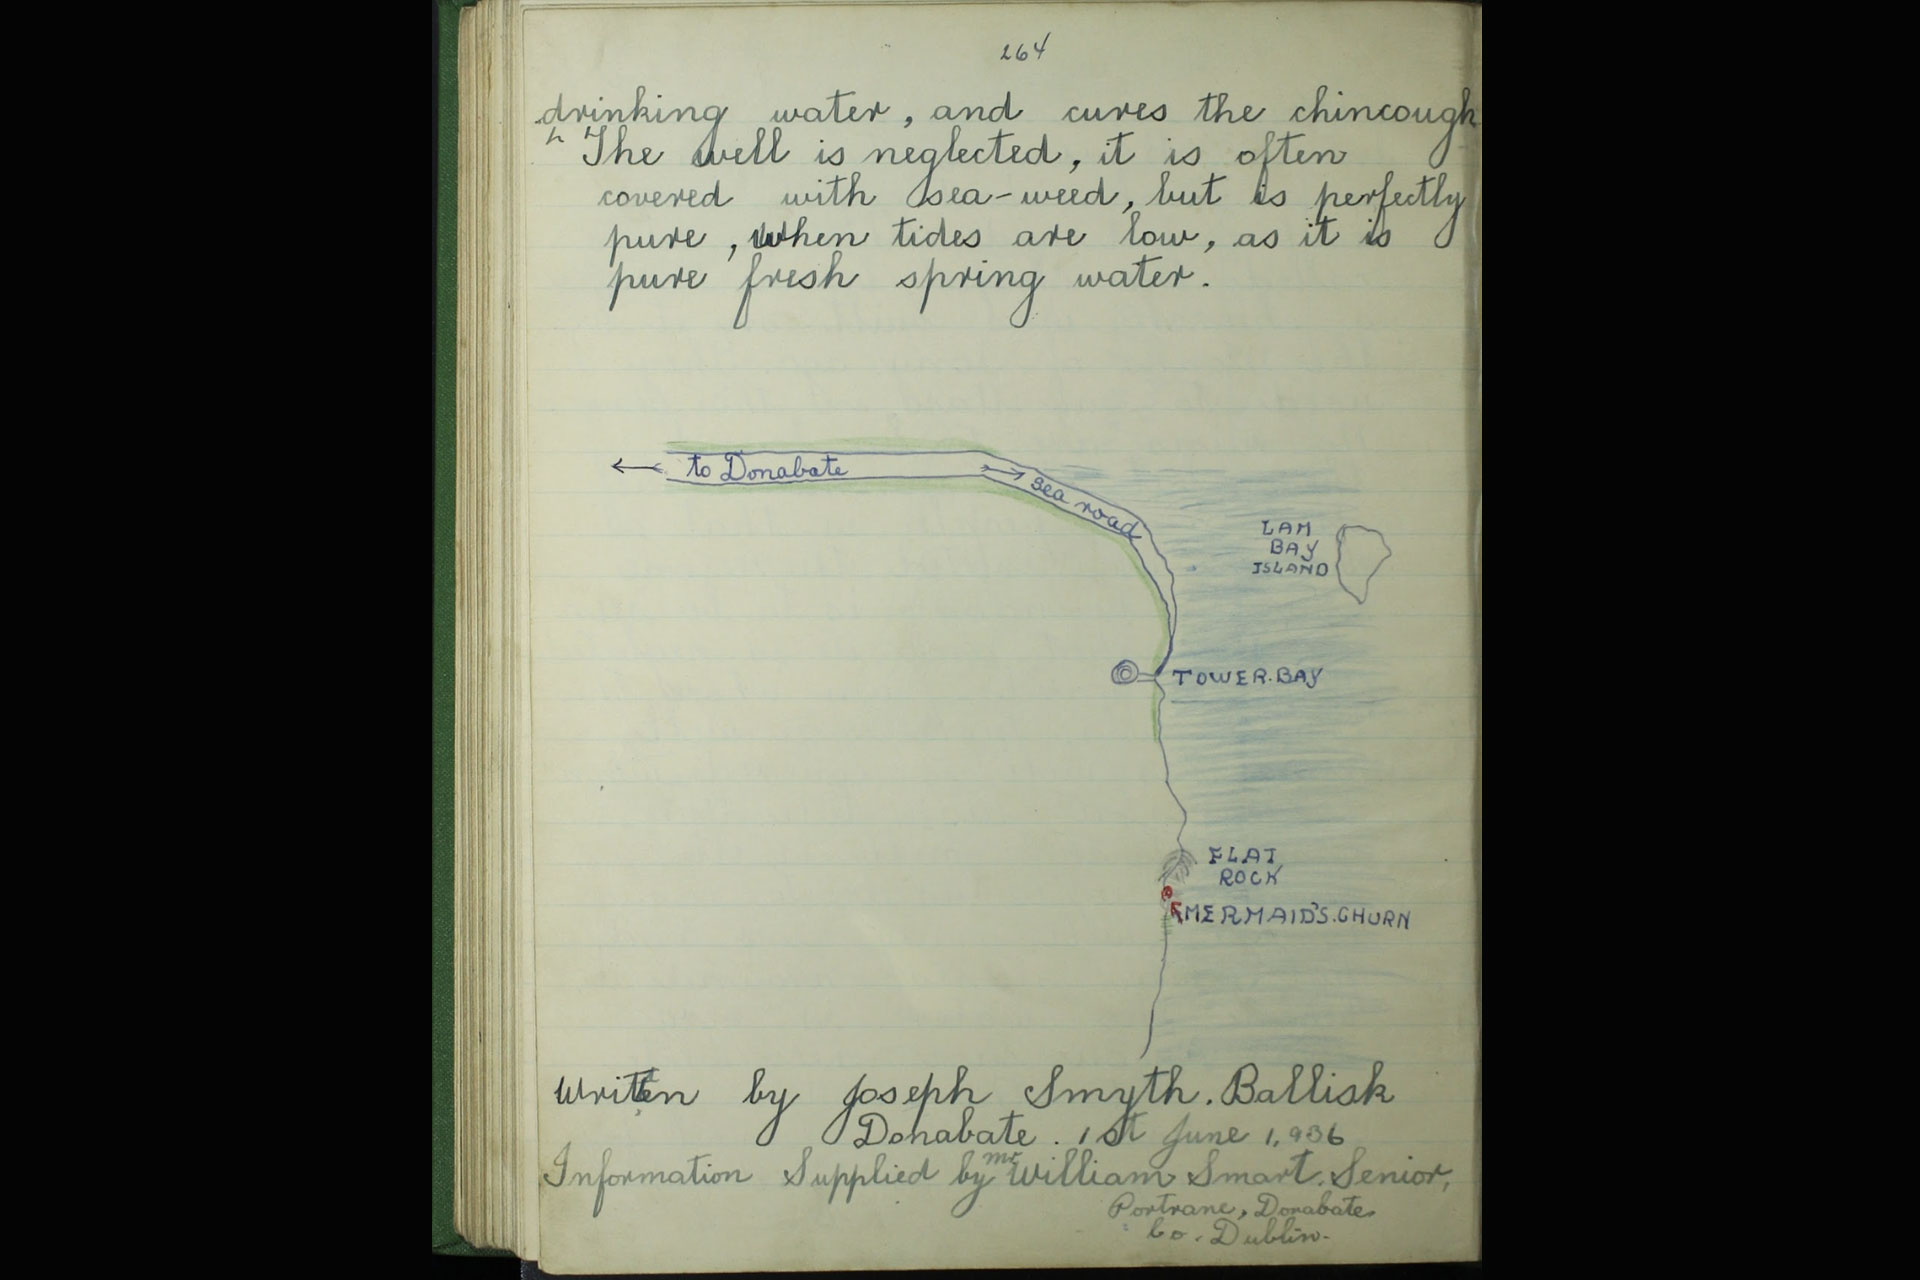 264
drinking water, and cures the chincough
The well is neglected, it is often
covered with sea-weed, but is perfectly
pure, when tides are low, as it is
pure fresh spring water.
to Donabate
sea road
LAM
BAY
ISLAND
TOWER.BAY
FLAT
ROCK
MERMAID'S.CHURN
Written by Joseph Smyth. Ballisk
Donabate. 1st June 1,936
Information Supplied by Mr William Smart. Senior,
Portrane, Donabate.
Co. Dublin.